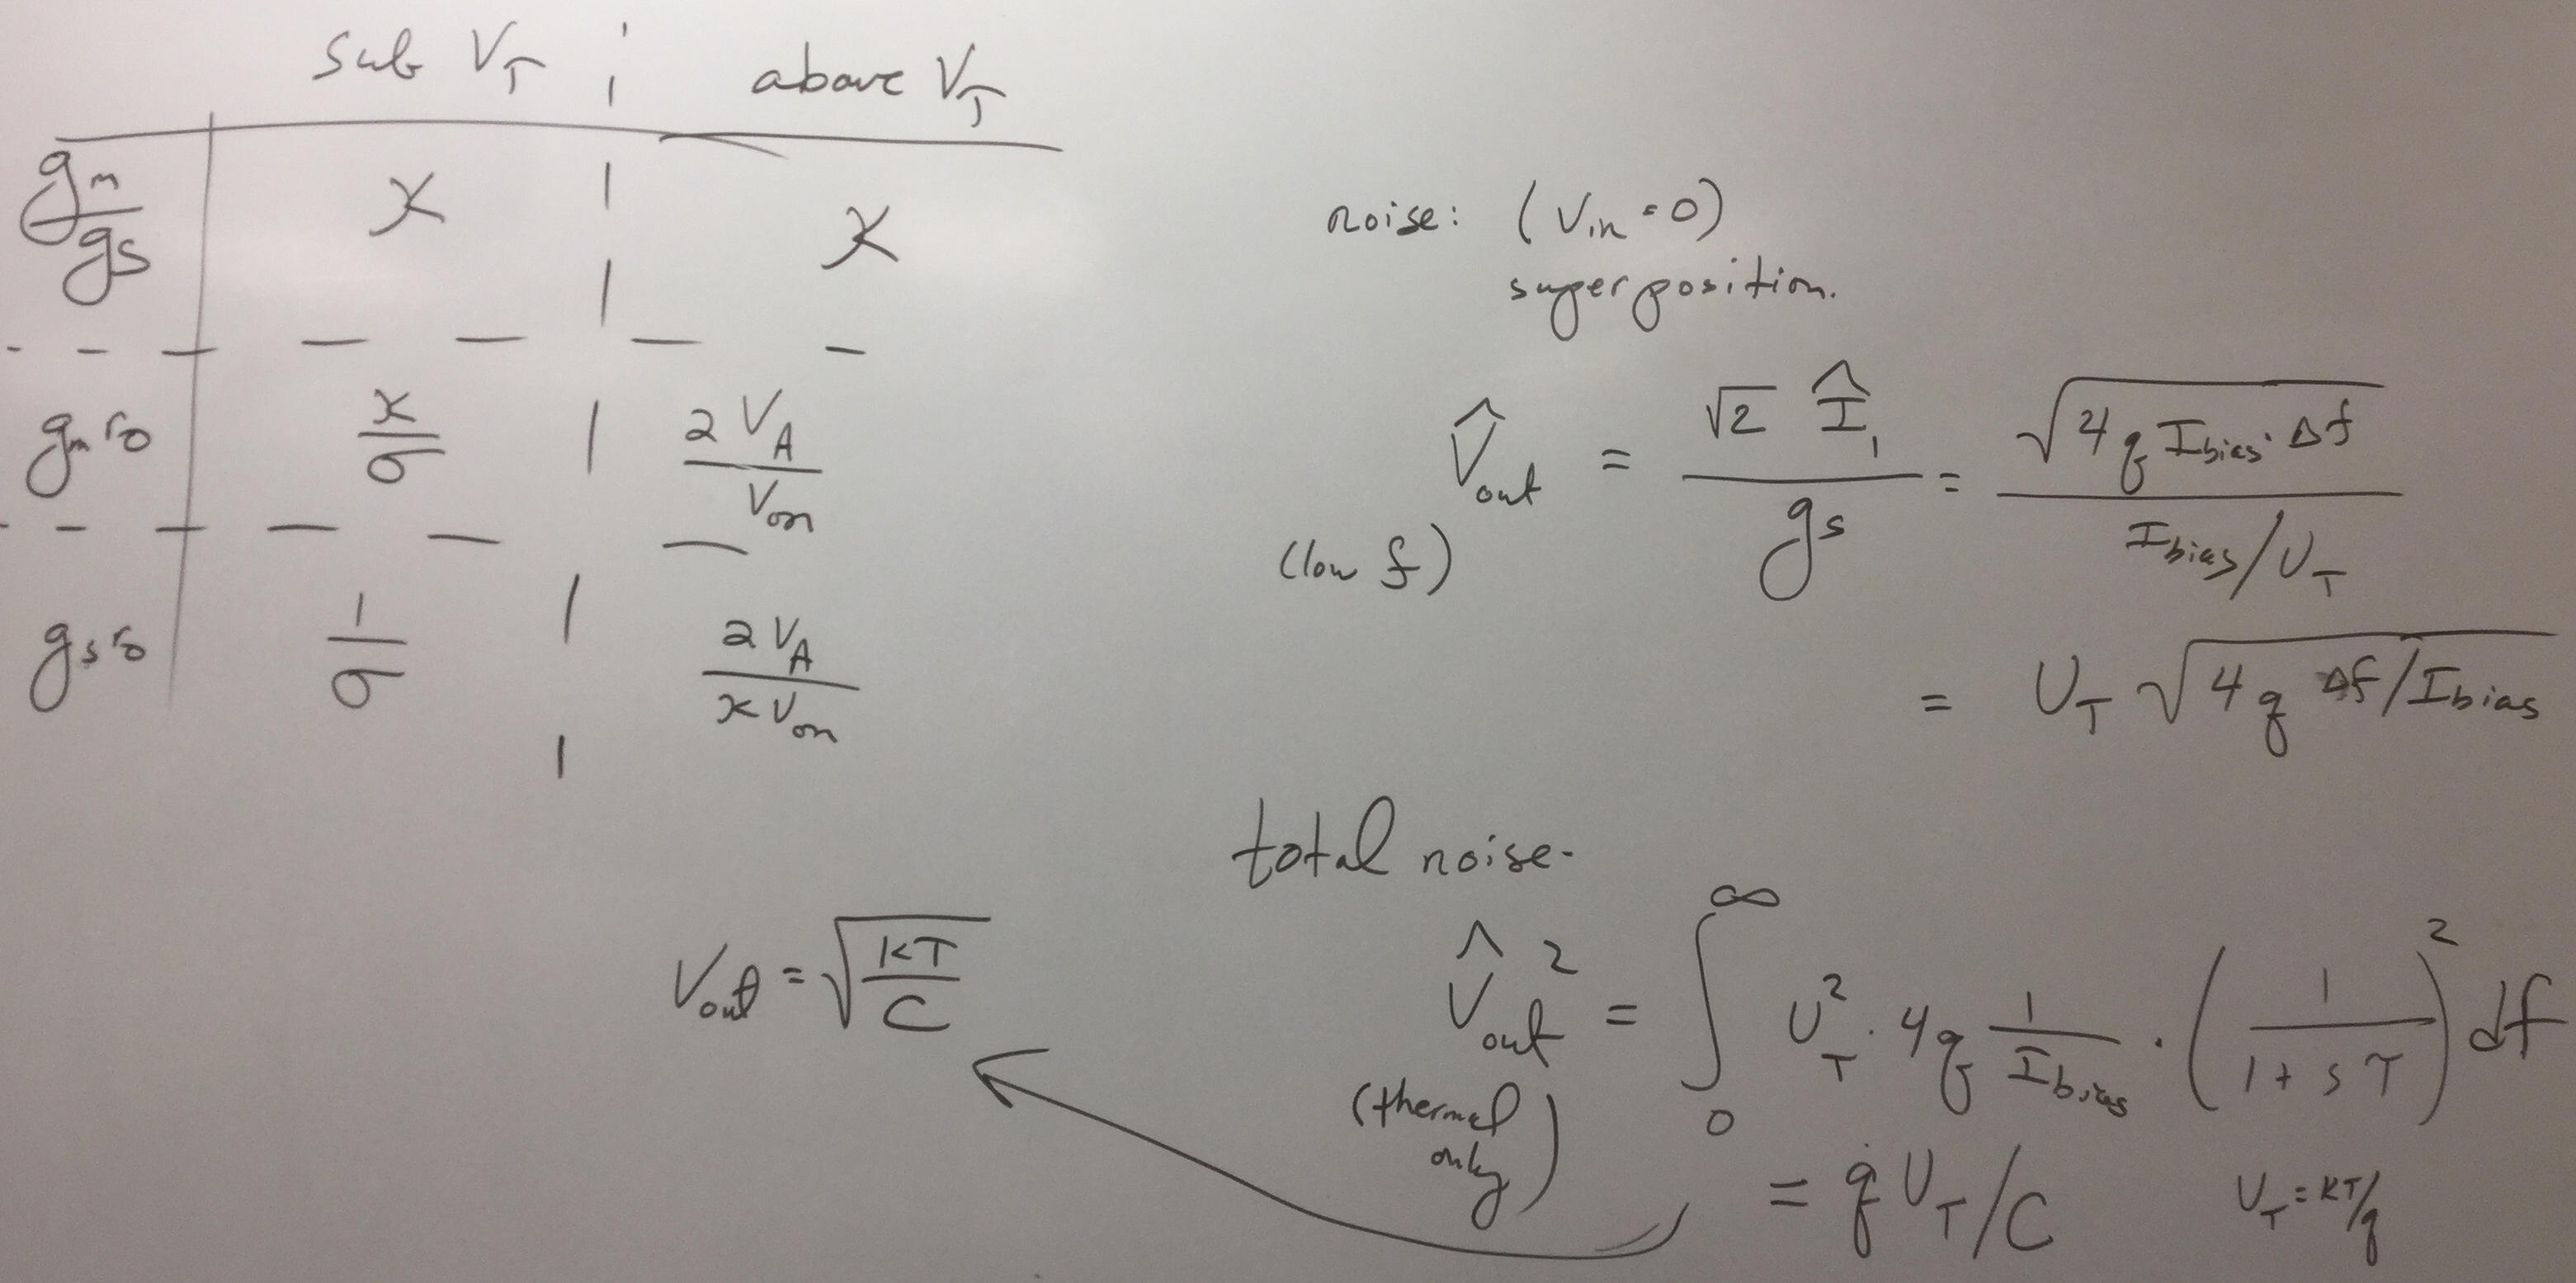 sub V_T ¦ above V_T
g_m/g_s | κ ¦ κ
g_m r_o | κ/σ ¦ 2V_A/V_on
g_s r_o | 1/σ ¦ 2V_A/κV_on
noise: (V_in = 0)
superposition.
V̂_out = √2 Î_1 / g_s = √(4q I_bias·Δf) / (I_bias/U_T)
(low f)
= U_T √(4q Δf/I_bias)
total noise-
V̂²_out = ∫_0^∞ U_T² · 4q 1/I_bias · (1/(1+sτ))² df
(thermal
only)
= qU_T/C U_T = kT/q
V_out = √(kT/C)